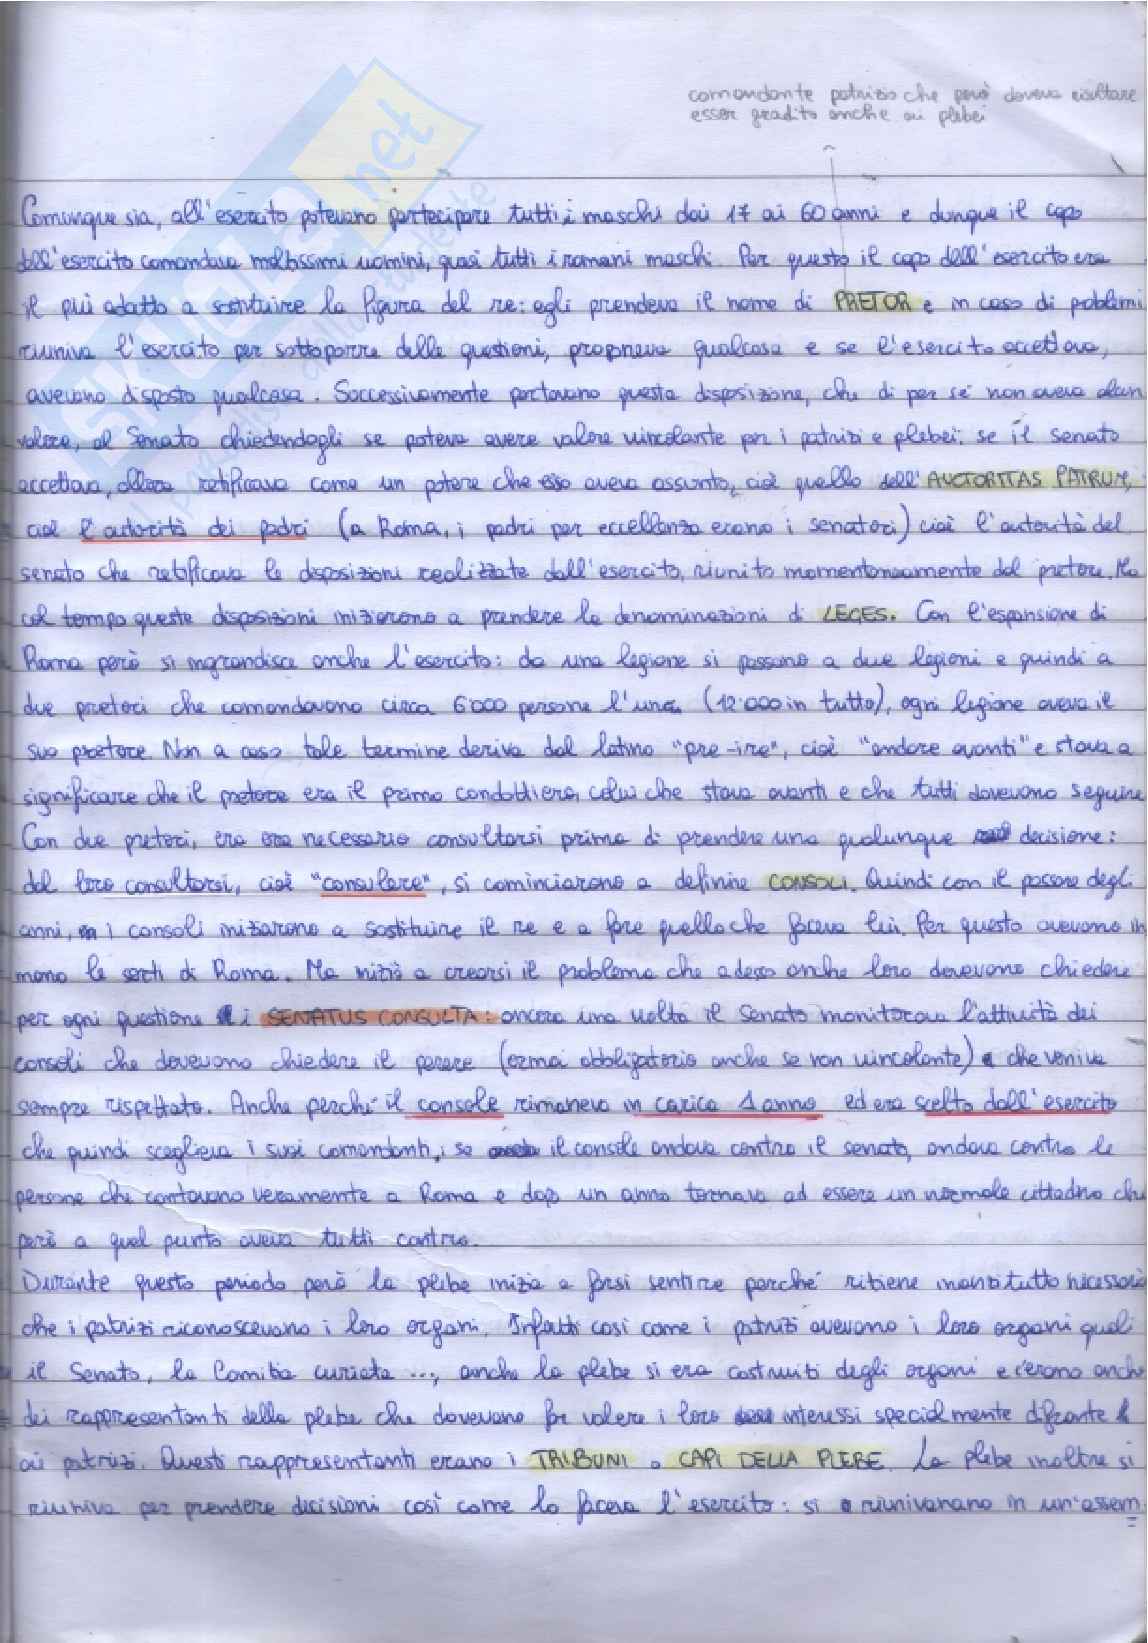 comandante patrizio che però doveva risultare
esser gradito anche ai plebei
Comunque sia, all'esercito potevano partecipare tutti i maschi dai 17 ai 60 anni e dunque il capo
dell'esercito comandava moltissimi uomini, quasi tutti i romani maschi. Per questo il capo dell'esercito era
il più adatto a sostituire la figura del re: egli prendeva il nome di PRETOR e in caso di problemi
riuniva l'esercito per sottoporre delle questioni, proponeva qualcosa e se l'esercito accettava,
avevano disposto qualcosa. Successivamente portavano questa disposizione, che di per sé non aveva alcun
valore, al Senato chiedendogli se poteva avere valore vincolante per i patrizi e plebei: se il senato
accettava, allora ratificava come un potere che esso aveva assunto, cioè quello dell'AUCTORITAS PATRUM,
cioè l'autorità dei padri (a Roma, i padri per eccellenza erano i senatori) cioè l'autorità del
senato che ratificava le disposizioni realizzate dall'esercito, riunito momentaneamente dal pretore. Ma
col tempo queste disposizioni iniziarono a prendere la denominazioni di LEGES. Con l'espansione di
Roma però si ingrandisce anche l'esercito: da una legione si passano a due legioni e quindi a
due pretori che comandavano circa 6000 persone l'una (12'000 in tutto), ogni legione aveva il
suo pretore. Non a caso tale termine deriva dal latino "pre-ire", cioè "andare avanti" e stava a
significare che il pretore era il primo condottiero, colui che stava avanti e che tutti dovevano seguire
Con due pretori, era necessario consultarsi prima di prendere una qualunque decisione:
dal loro consultarsi, cioè "consulere", si cominciarono a definire CONSOLI. Quindi con il passare degli
anni, i consoli iniziarono a sostituire il re e a fare quello che faceva lui. Per questo avevano in
mano le sorti di Roma. Ma iniziò a crearsi il problema che adesso anche loro dovevano chiedere
per ogni questione i SENATUS CONSULTA: ancora una volta il Senato monitorava l'attività dei
consoli che dovevano chiedere il parere (ormai obbligatorio anche se non vincolante) che veniva
sempre rispettato. Anche perché il console rimaneva in carica 1 anno ed era scelto dall'esercito
che quindi sceglieva i suoi comandanti, se il console andava contro il senato, andava contro le
persone che contavano veramente a Roma e dopo un anno tornava ad essere un normale cittadino che
però a quel punto aveva tutti contro.
Durante questo periodo però la plebe inizia a farsi sentire perché ritiene innanzitutto necessario
che i patrizi riconoscevano i loro organi. Infatti così come i patrizi avevano i loro organi quali
il Senato, la Comitia curiata ..., anche la plebe si era costruiti degli organi e c'erano anche
dei rappresentanti della plebe che dovevano far valere i loro interessi specialmente difronte
ai patrizi. Questi rappresentanti erano i TRIBUNI o CAPI DELLA PLEBE. La plebe inoltre si
riuniva per prendere decisioni così come lo faceva l'esercito: si riunivanano in un'assem